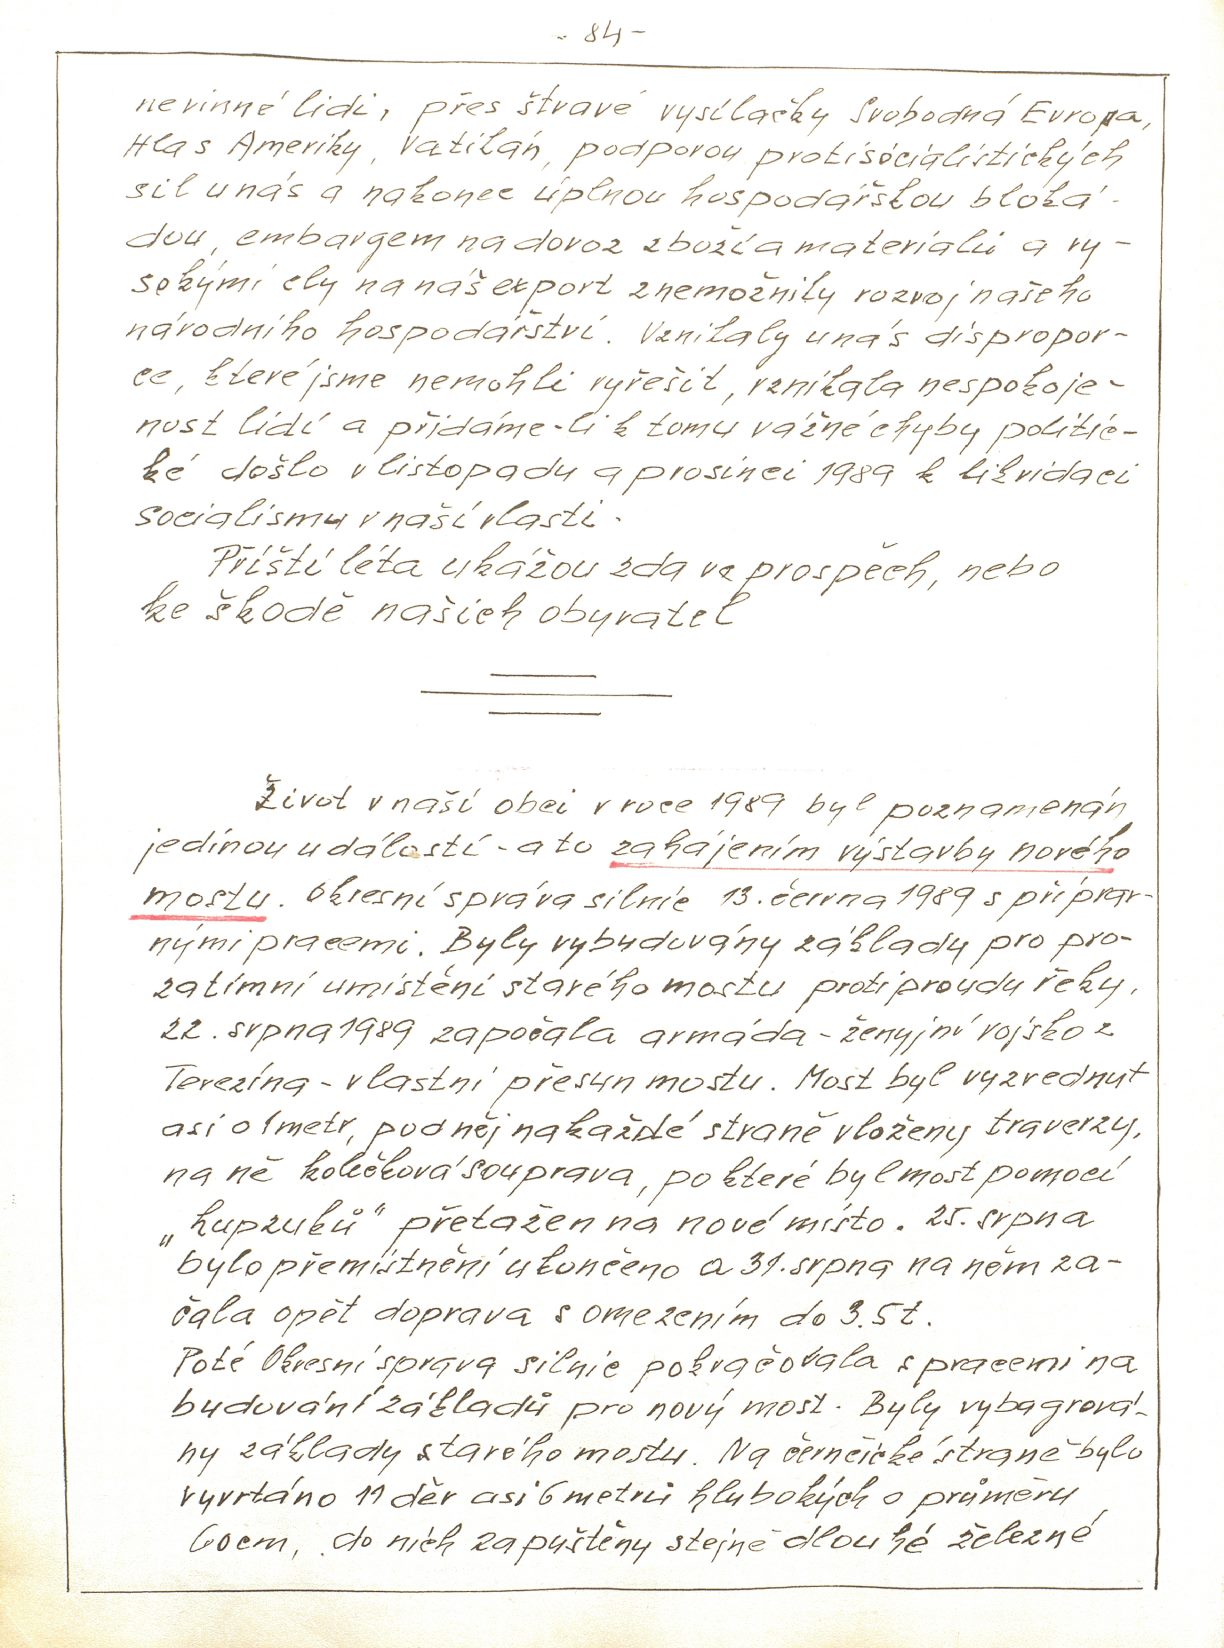 - 84 -
nevinné lidi, přes štvavé vysílačky Svobodná Evropa,
Hlas Ameriky, Vatikán, podporou protisocialistických
sil u nás a nakonec úplnou hospodářskou bloká-
dou, embargem na dovoz zboží a materiálu a vy-
sokými cly na náš export znemožnily rozvoj našeho
národního hospodářství. Vznikaly u nás dispropor-
ce, které jsme nemohli vyřešit, vznikala nespokoje-
nost lidí a přidáme-li k tomu vážné chyby politic-
ké došlo v listopadu a prosinci 1989 k likvidaci
socialismu v naší vlasti.
Příští léta ukážou zda ve prospěch, nebo
ke škodě našich obyvatel
Život v naší obci v roce 1989 byl poznamenán
jedinou událostí - a to zahájením výstavby nového
mostu. Okresní správa silnic 13. června 1989 s příprav-
nými pracemi. Byly vybudovány základy pro pro-
zatímní umístění starého mostu proti proudu řeky.
22. srpna 1989 započala armáda - ženijní vojsko z
Terezína - vlastní přesun mostu. Most byl vyzvednut
asi o 1 metr, pod něj na každé straně vloženy traverzy,
na ně kolečková souprava, po které byl most pomocí
„hupzuků" přetažen na nové místo. 25. srpna
bylo přemístnění ukončeno a 31. srpna na něm za-
čala opět doprava s omezením do 3.5 t.
Poté Okresní správa silnic pokračovala s pracemi na
budování základů pro nový most. Byly vybagrová-
ny základy starého mostu. Na černčické straně bylo
vyvrtáno 11 děr asi 6 metrů hlubokých o průměru
60cm, do nich zapuštěny stejně dlouhé železné